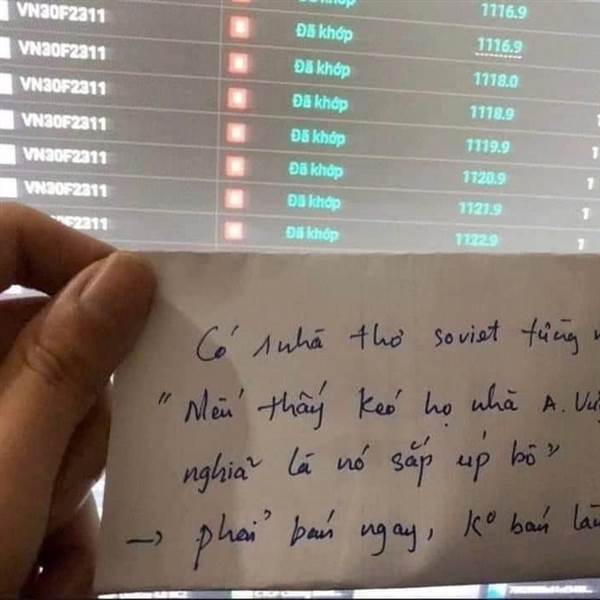 VN30F2311 Đã khớp 1116.9
VN30F2311 Đã khớp 1116.9
VN30F2311 Đã khớp 1118.0
VN30F2311 Đã khớp 1118.9
VN30F2311 Đã khớp 1119.9 1
VN30F2311 Đã khớp 1120.9 1
F2311 Đã khớp 1121.9 1
Đã khớp 1122.9 1
Có 1 nhà thơ soviet từng
"Nếu thấy kéo họ nhà A. Vư
nghĩa là nó sắp úp bô"
→ phải bán ngay, ko bán là